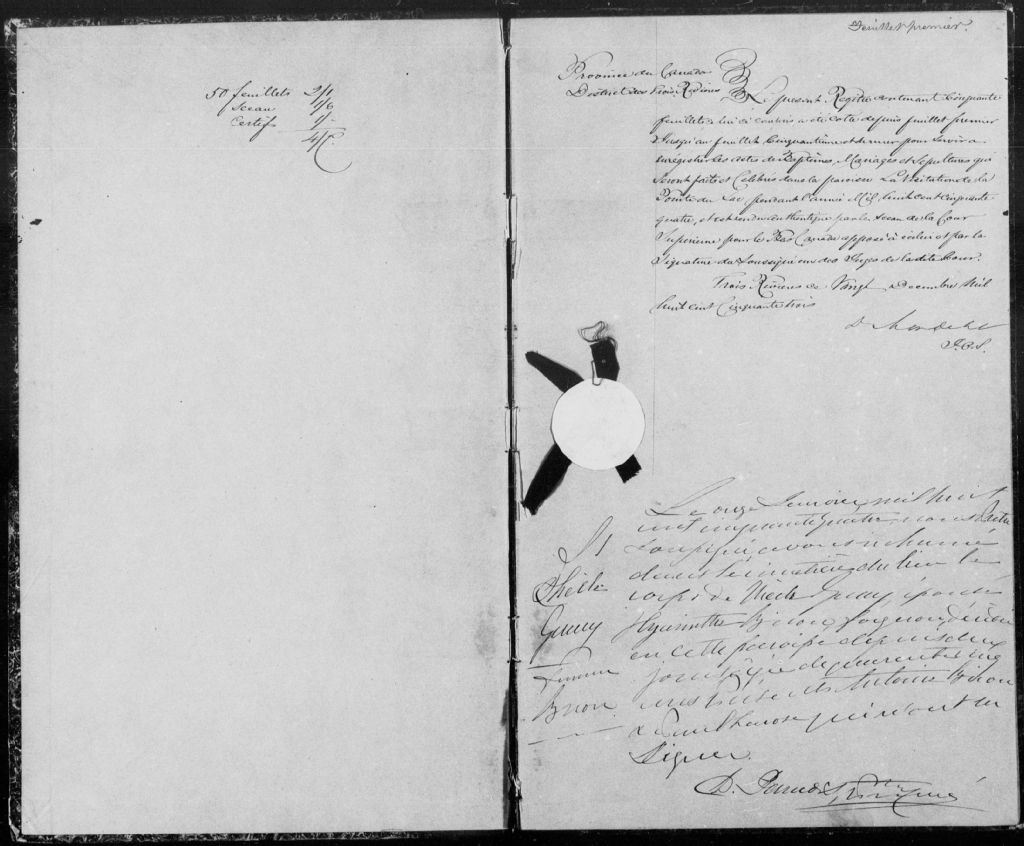 50 feuillets 2/1
Sceau 1/6
Certif 1/-
4/7
Feuillet premier.
Province du Canada
District des Trois Rivières
Le présent Registre contenant Cinquante
feuillets lui ci contenu a été coté depuis feuillet premier
Jusqu'au feuillet Cinquantième et dernier pour servir a
enrégistrer les actes de Baptêmes, Mariages et Sépultures qui
Seront faits et Célébrés dans la paroisse La Visitation de la
Pointe du Lac, pendant l'année Mil huit cent cinquante
quatre, et est rendu authentique par le Sceau de la Cour
Supérieure pour le Bas Canada apposé à icelui et par la
Signature du Soussigné un des Juges de la dite Cour.
Trois Rivières ce Vingt Decembre Mil
huit cent Cinquante trois
J.C.S.
Le onze Janvier, mil huit
cent cinquante quatre, nous Prêtre
Soussigné avons inhumé
dans le cimetière du lieu le
corps de Guay, épouse
Hyacinthe Biron, décédée
en cette paroisse depuis deux
jours âgée de quarante cinq
ans Antoine Biron
&
signer.
S
Guay
Femme
Biron.
D. Ptre Curé